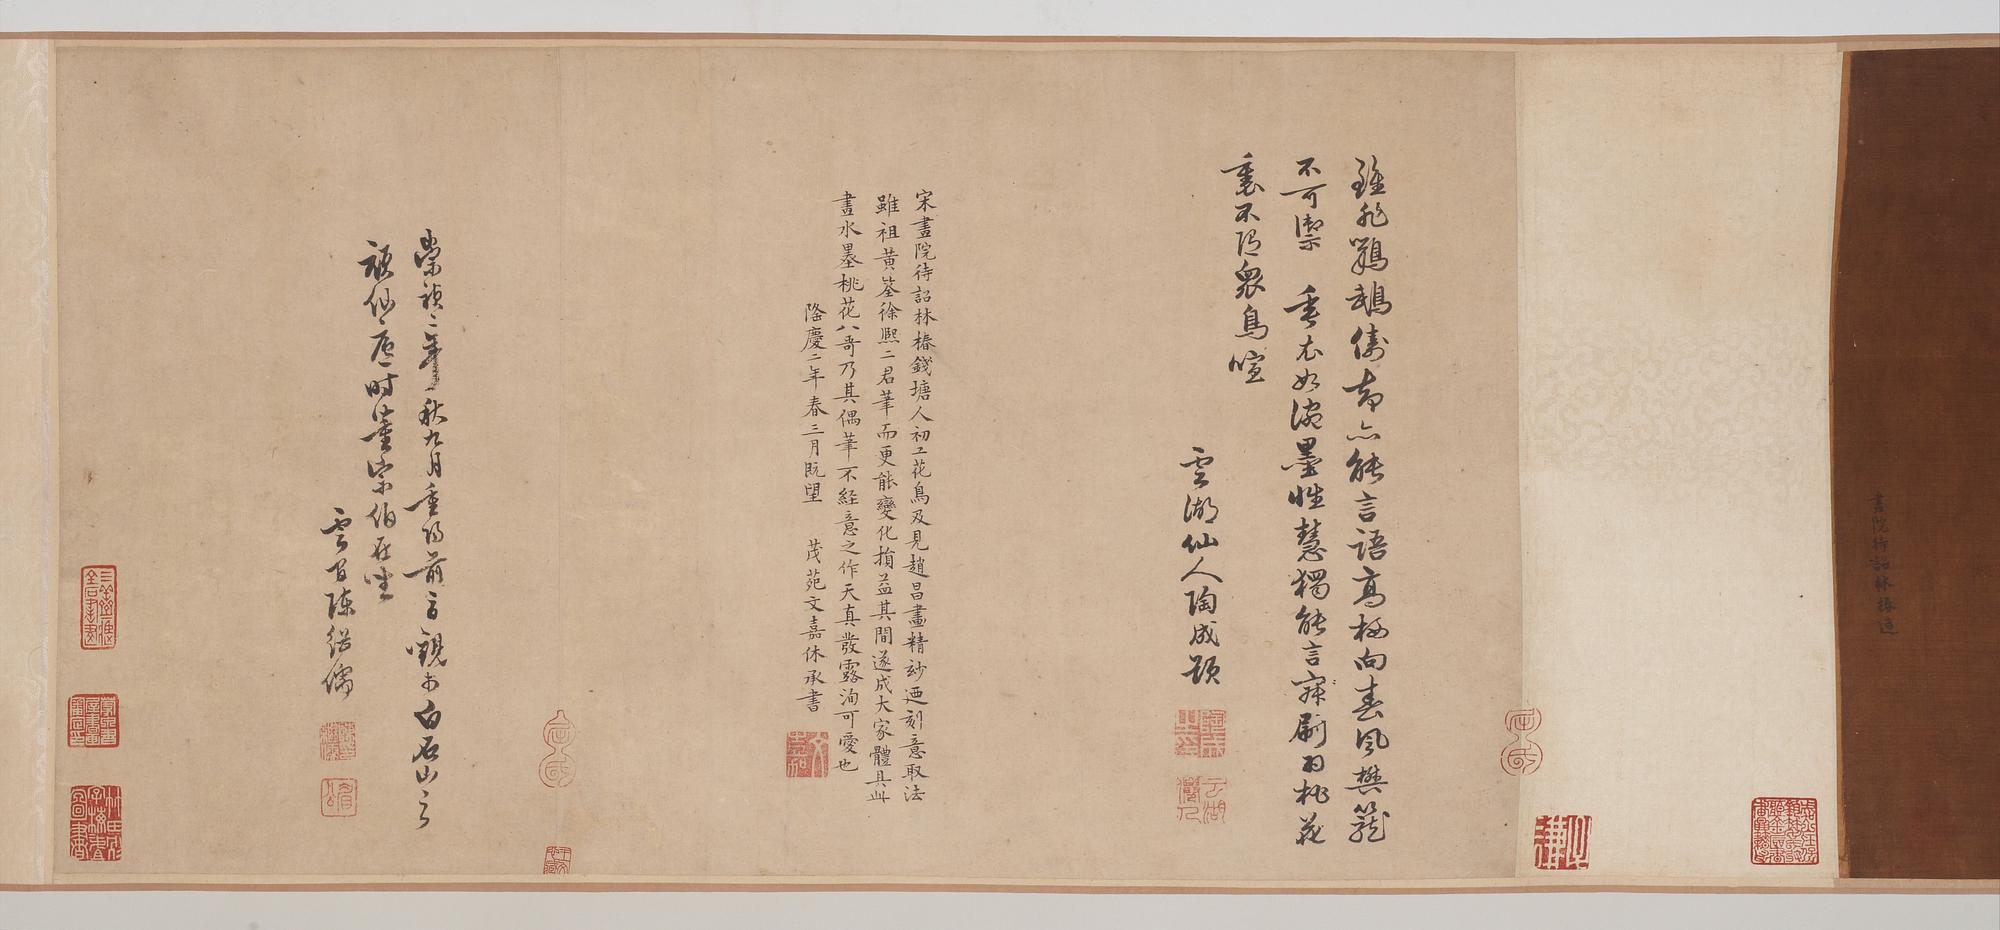 畫院待詔林椿造
雖非鸚鵡儔却亦能言語高棲向春風樊籠
不可禦 垂衣如潑墨性慧獨能言寐刷羽桃花
裏不隨眾鳥喧
雲湖仙人陶成題
宋畫院待詔林椿錢塘人初工花鳥及見趙昌畫精妙迺刻意取法
雖祖黃筌徐熙二君筆而更能變化損益其間遂成大家體具此
畫水墨桃花八哥乃其偶筆不經意之作天真發露洵可愛也
隆慶二年春三月既望 茂苑文嘉休承書
崇禎二年秋九月重陽前一日觀於白石山之
頑仙廬時董宗伯在坐
雲間陳繼儒